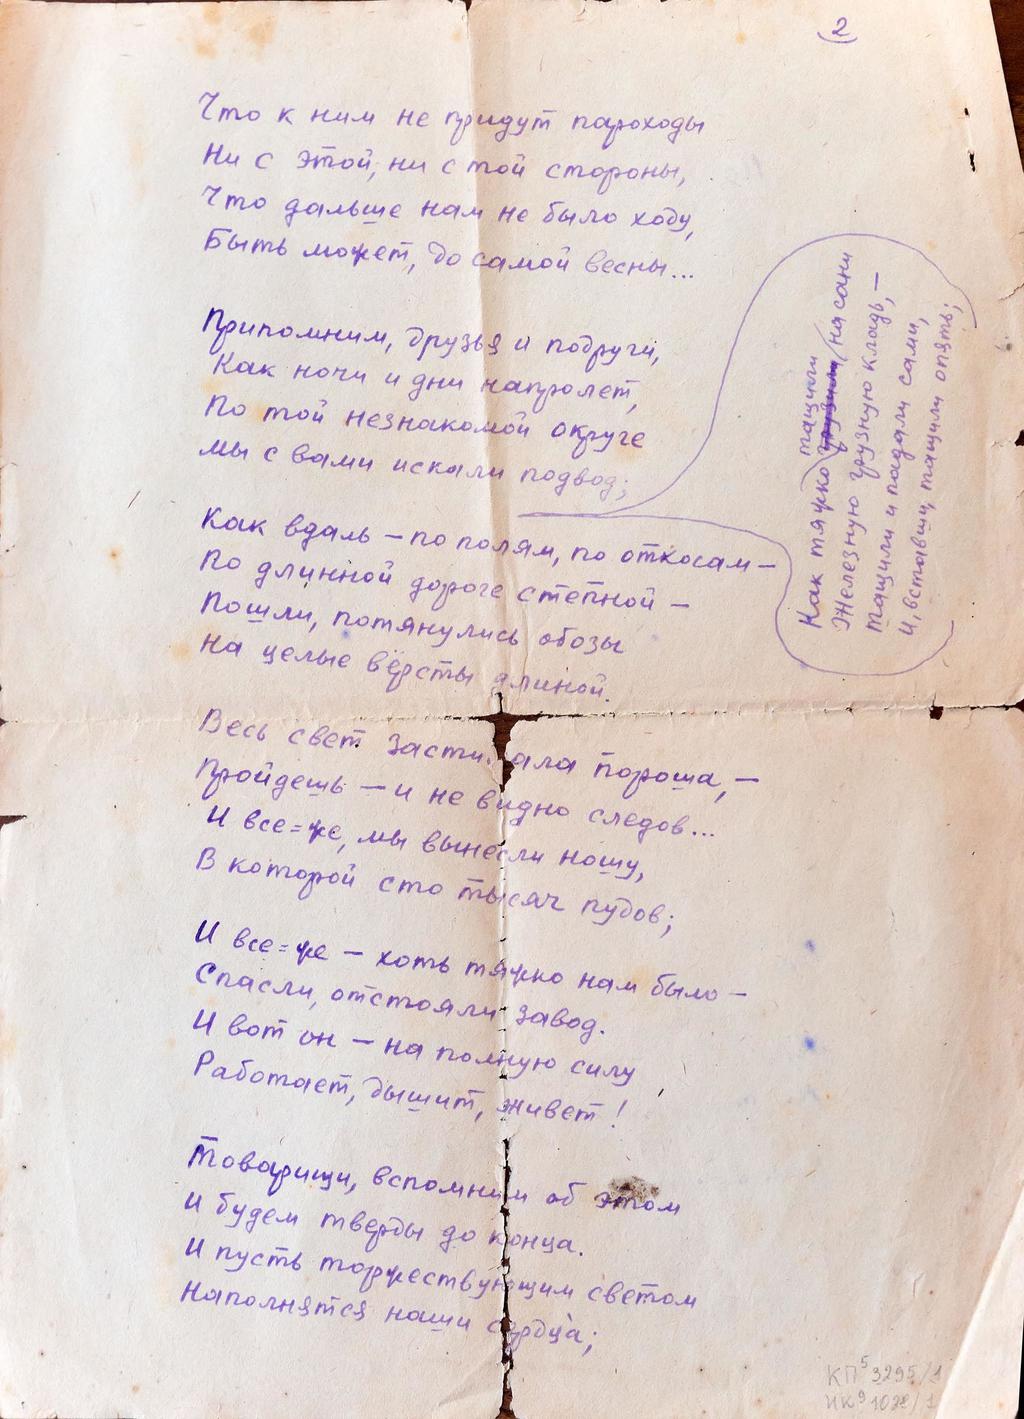 2
Что к ним не придут пароходы
Ни с этой, ни с той стороны,
Что дальше нам не было ходу,
Быть может, до самой весны...
Припомним, друзья и подруги,
Как ночи и дни напролет,
По той незнакомой округе
мы с вами искали подвод;
Как тяжко грузили тащили на сани
Железную грузную кладь, —
Тащили и падали сами,
И, вставши, тащили опять;
Как вдаль – по полям, по откосам –
По длинной дороге степной –
Пошли, потянулись обозы
На целые вёрсты длиной.
Весь свет засти ала пороша, –
Пройдешь – и не видно следов...
И все=же, мы вынесли ношу,
В которой сто тысяч пудов;
И все=же – хоть тяжко нам было –
Спасли, отстояли завод.
И вот он – на полную силу
Работает, дышит, живет!
Товарищи, вспомним об этом
И будем тверды до конца.
И пусть торжествующим светом
Наполнятся наши сердца;
КП⁵ 3295/1
ИК⁹ 1028/1